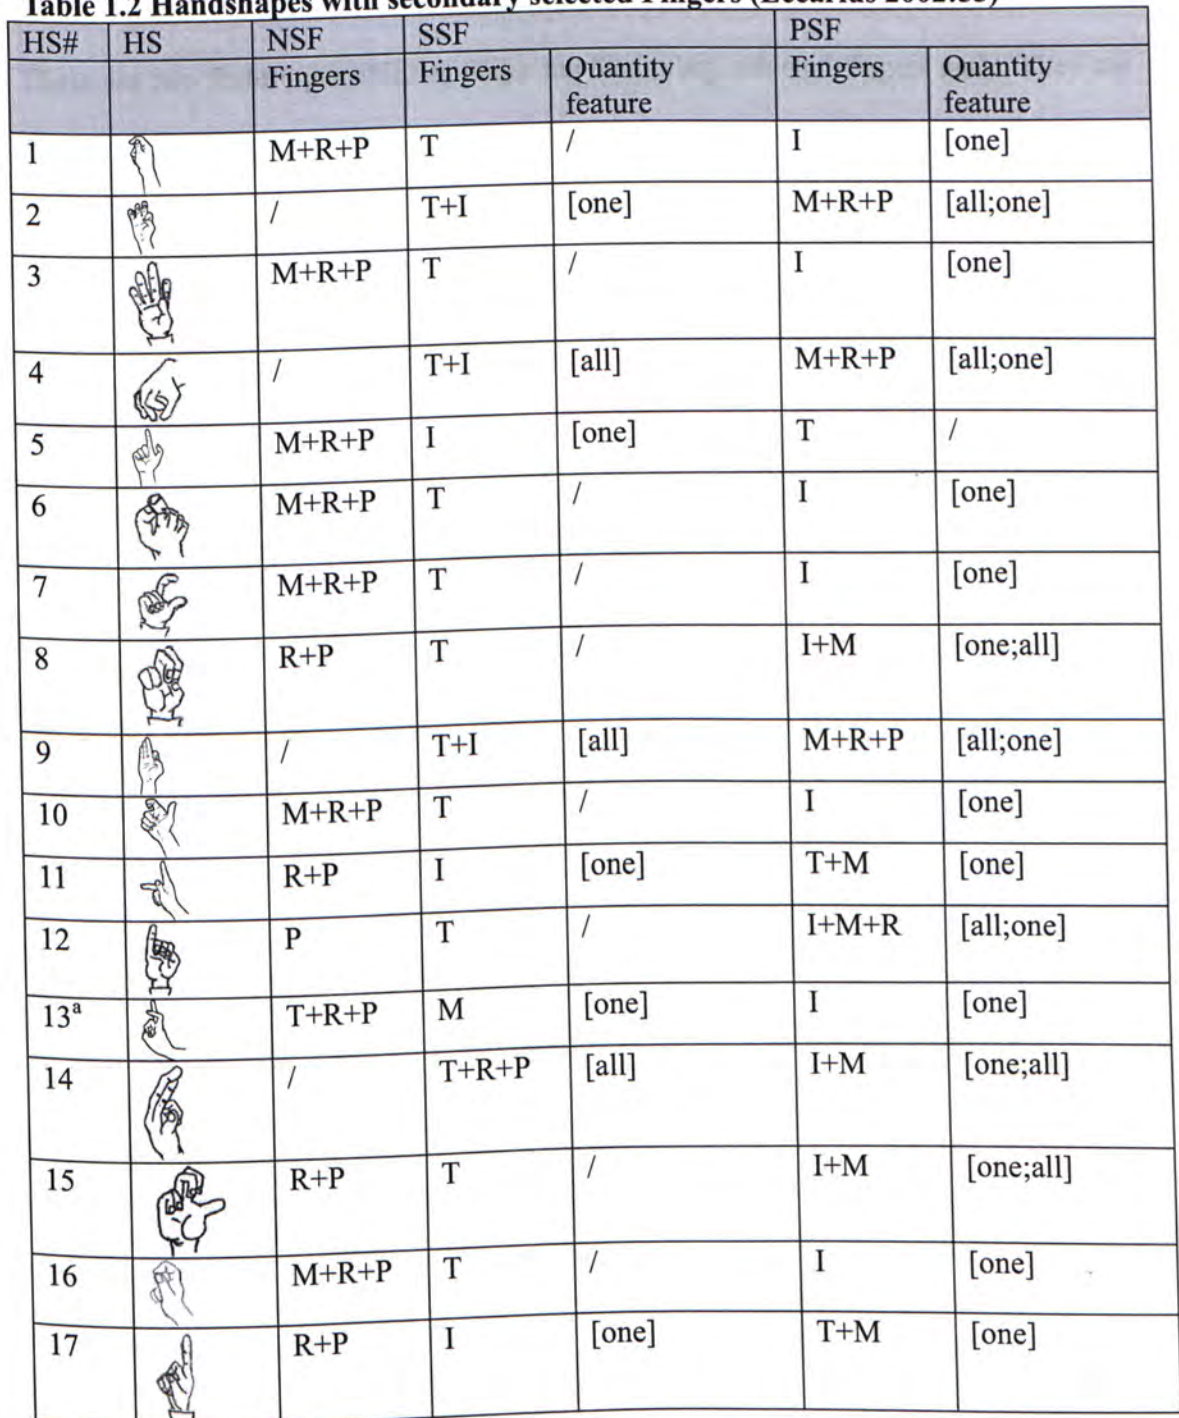 Table 1.2 Handshapes with secondary selected Fingers (Eccarius 2002:33)
HS# HS NSF SSF PSF
Fingers Fingers Quantity feature Fingers Quantity feature
1 M+R+P T / I [one]
2 / T+I [one] M+R+P [all;one]
3 M+R+P T / I [one]
4 / T+I [all] M+R+P [all;one]
5 M+R+P I [one] T /
6 M+R+P T / I [one]
7 M+R+P T / I [one]
8 R+P T / I+M [one;all]
9 / T+I [all] M+R+P [all;one]
10 M+R+P T / I [one]
11 R+P I [one] T+M [one]
12 P T / I+M+R [all;one]
13ᵃ T+R+P M [one] I [one]
14 / T+R+P [all] I+M [one;all]
15 R+P T / I+M [one;all]
16 M+R+P T / I [one]
17 R+P I [one] T+M [one]